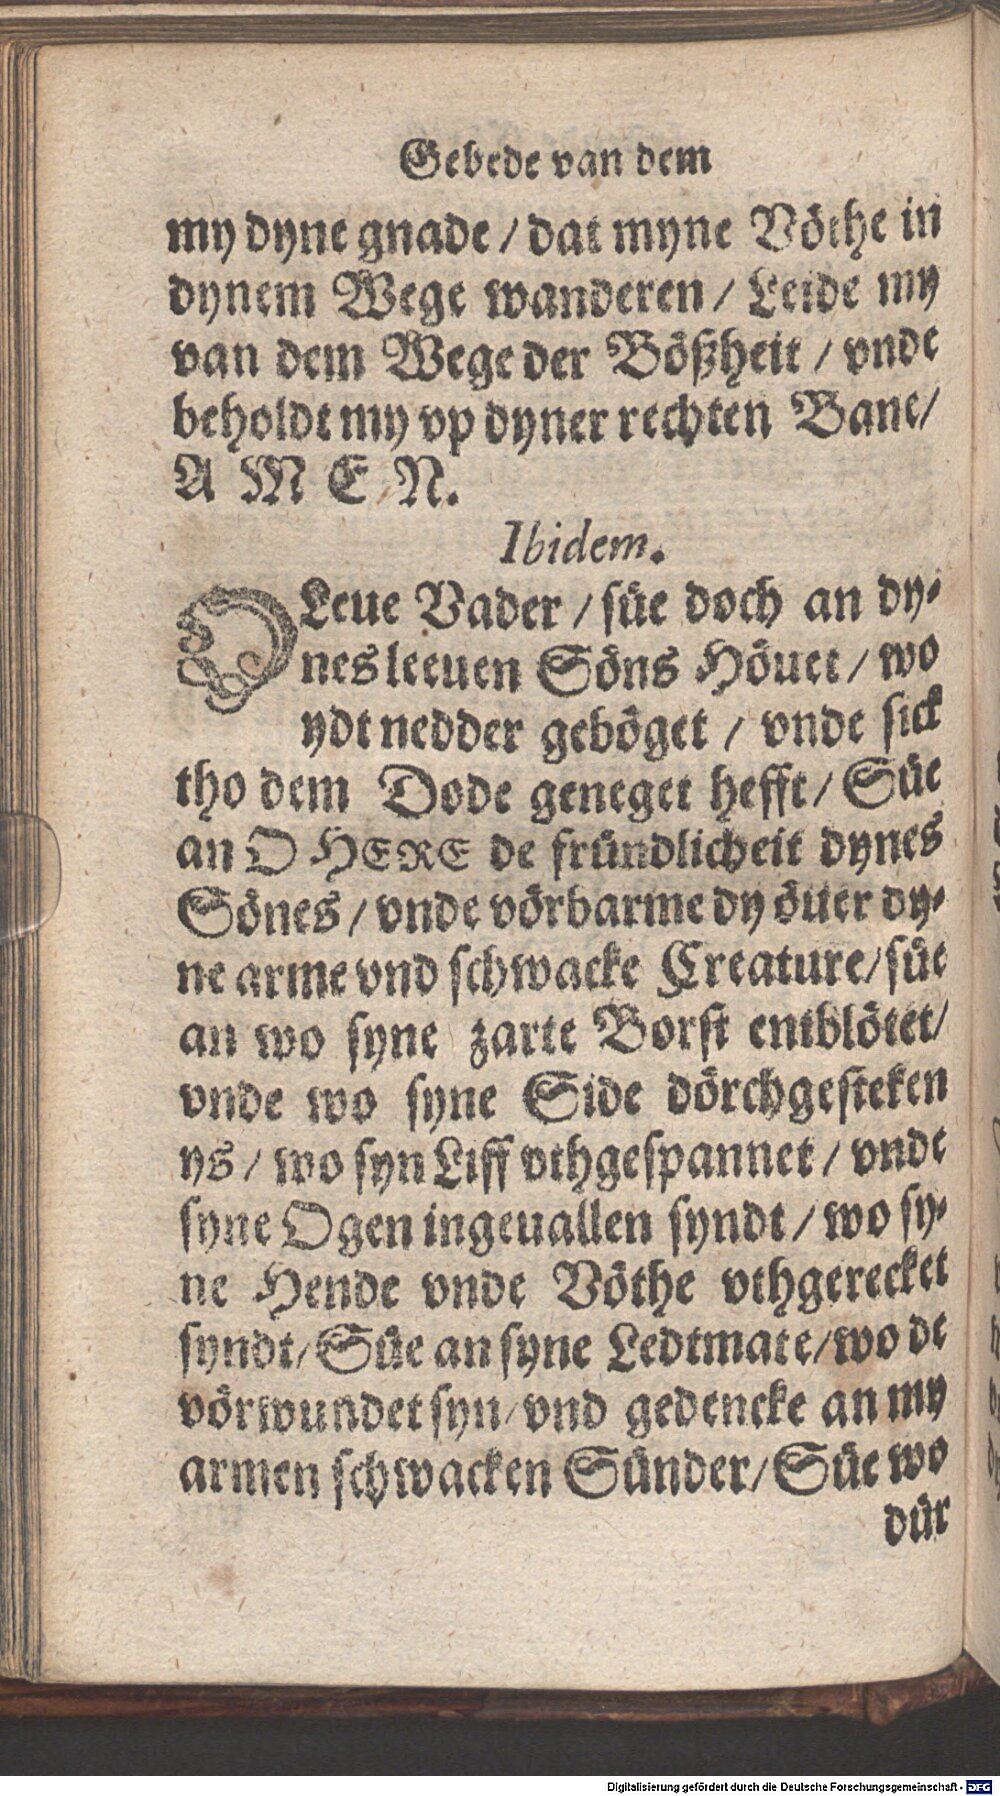 Gebede van dem
my dyne gnade / dat myne Vöthe in
dynem Wege wanderen / Leide my
van dem Wege der Bößheit / vnde
beholdt my vp dyner rechten Bane /
A M E N.
Ibidem.
O Leue Vader / süe doch an dy-
nes leeuen Söns Höuet / wo
ydt nedder geböget / vnde sick
tho dem Dode geneget hefft / Süe
an O HERE de fründlicheit dynes
Sönes / vnde vörbarme dy öuer dy-
ne arme vnd schwacke Creature / süe
an wo syne zarte Borst entblötet /
vnde wo syne Side dörchgesteken
ys / wo syn Liff vthgespannet / vnde
syne Ogen ingeuallen syndt / wo sy-
ne Hende vnde Vöthe vthgerecket
syndt / Süe an syne Ledtmate / wo de
vörwundet syn / vnd gedencke an my
armen schwacken Sünder / Süe wo
dür
Digitalisierung gefördert durch die Deutsche Forschungsgemeinschaft - DFG